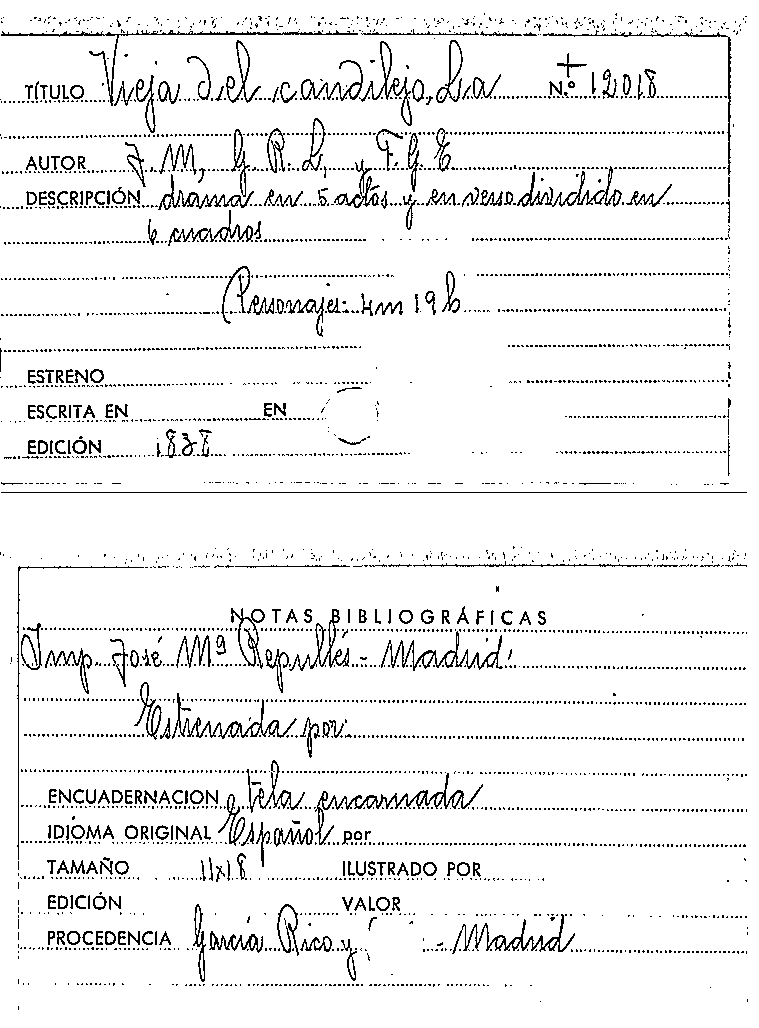 TÍTULO Vieja del candilejo, La N.º 12018
AUTOR J. M, G. R. L, y F. G E
DESCRIPCIÓN drama en 5 actos y en verso dividido en
6 cuadros
Personajes: 4m 19h
ESTRENO
ESCRITA EN EN
EDICIÓN 1838
NOTAS BIBLIOGRÁFICAS
Imp. José Mª Repullés - Madrid.
Estrenada por:
ENCUADERNACION tela encarnada
IDIOMA ORIGINAL Español por
TAMAÑO 11x18 ILUSTRADO POR
EDICIÓN VALOR
PROCEDENCIA García Rico y - Madrid